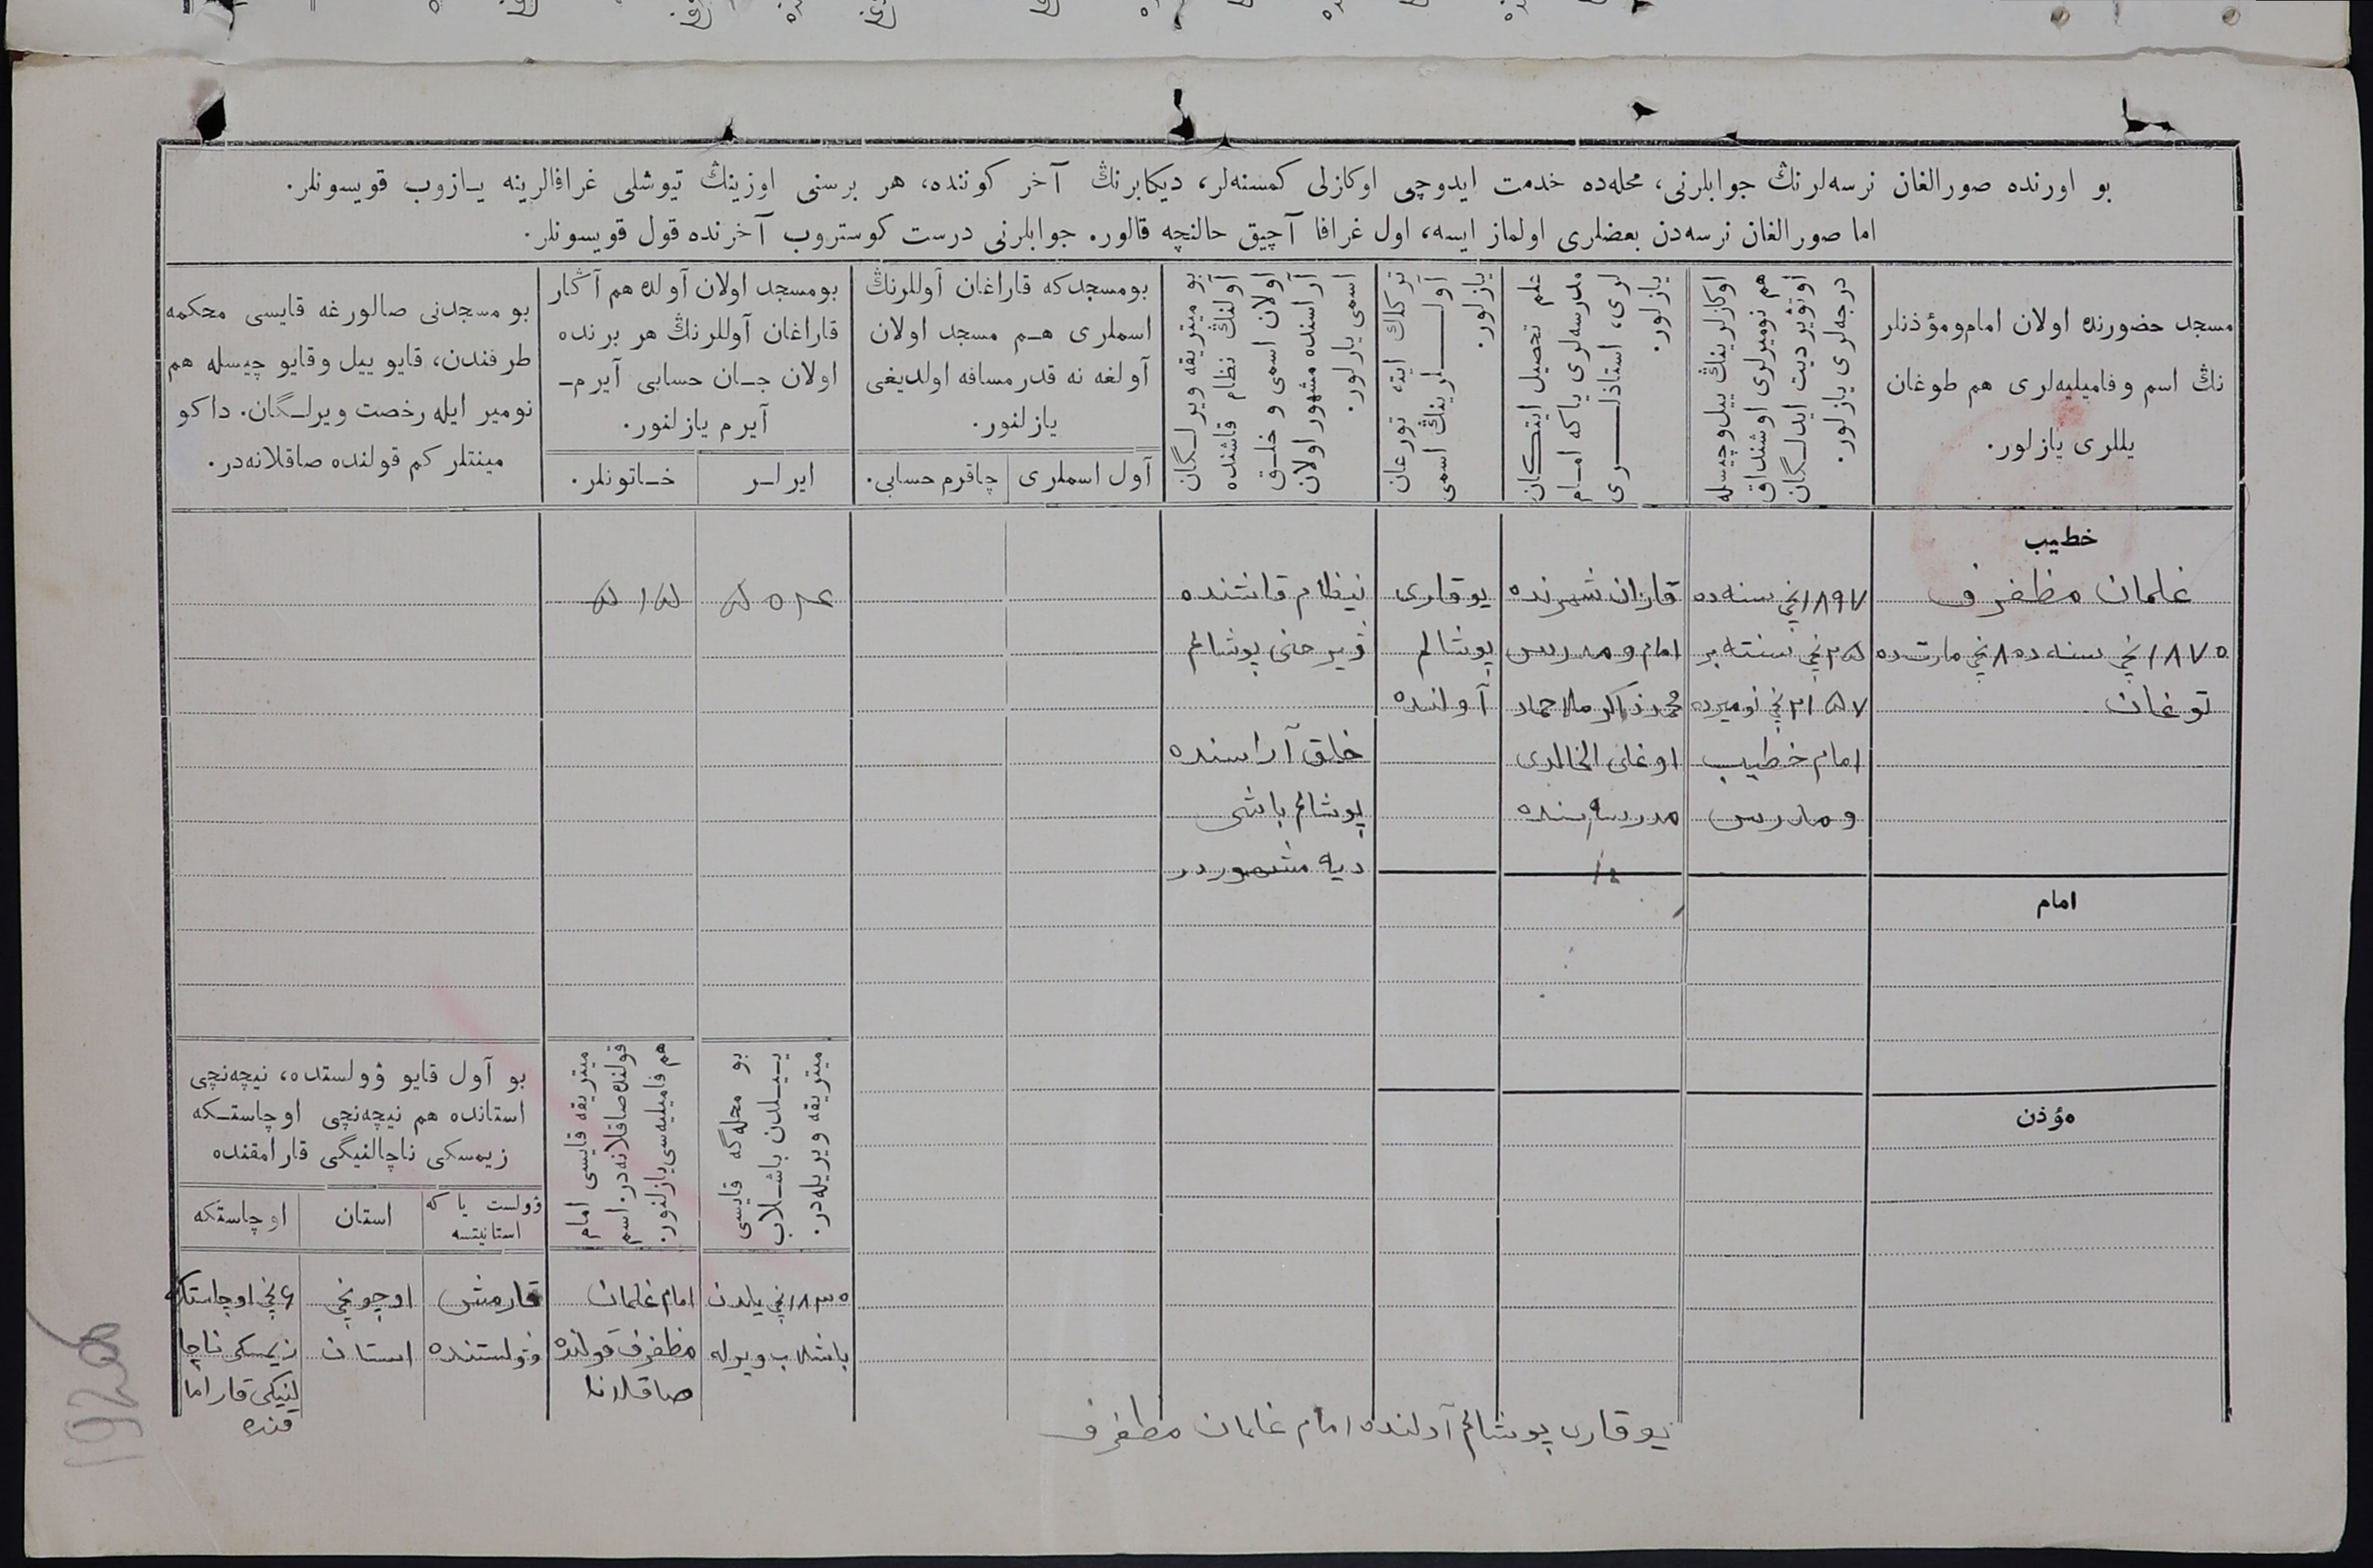 بو اورنده صورالغان نرسه‌لرنڭ جوابلرنی، محله‌ده خدمت ایدوچی اوکازلی کمسنه‌لر، دیکابرنڭ آخر کوننده، هر برسنی اوزینڭ تیوشلی غرافالرینه یازوب قویسونلر.
اما صورالغان نرسه‌دن بعضلری اولماز ایسه، اول غرافا آچیق حالنچه قالور. جوابلرنی درست کوستروب آخرنده قول قویسونلر.
مسجد حضورنده اولان امام و مؤذنلر
نڭ اسم و فامیلیه‌لری هم طوغان
یللری یازلور.
اوکازلرینڭ ییل و چیسله
هم نومیرلری اوشنداق
اوتویردیت ایدلگان
درجه‌لری یازلور.
علم تحصیل ایتکان
مدرسه‌لری یاکه امام
لری، استاذلری
یازلور.
ترکلك ایته تورغان
آوللرینڭ اسمی
یازلور.
بو میتریقه ویرلگان
آولنڭ نظام قاشنده
اولان اسمی و خلق
آراسنده مشهور اولان
اسمی یازلور.
بومسجدکه قاراغان آوللرنڭ
اسملری هم مسجد اولان
آولغه نه قدر مسافه اولدیغی
یازلنور.
آول اسملری
چاقرم حسابی.
بومسجد اولان آولده هم آڭار
قاراغان آوللرنڭ هر برنده
اولان جان حسابی آیرم-
آیرم یازلنور.
ایرلر
خاتونلر.
بو مسجدنی صالورغه قایسی محکمه
طرفندن، قایو ییل وقایو چیسله هم
نومیر ایله رخصت ویرلگان. داکو
مینتلر کم قولنده صاقلانه‌در.
خطیب
غلمان مظفرف
۱۸۷۵ نچی سنه‌ده ۸ نچی مارت‌ده
توغان
۱۸۹۷ نچی سنه‌ده
۲۱۵۷ نچی نومیرده
امام خطیب
و مدرس
قازان شهرنده
امام و مدرس
محمد ذاکر ملا احماد
اوغلی الخالدی
مدرسه‌سنده
یوقاری
پوشالم
آولنده
نیظام قاشنده
ویرحنی پوشالم
خلق آراسنده
پوشالم باشی
دیه مشهوردر
۵۱۵
امام
مؤذن
بو محله‌گه قایسی
ییلدن باشلاب
میتریقه ویریله‌در.
میتریقه قایسی امام
قولنده صاقلانه‌در. اسم
هم فامیلیه‌سی یازلنور.
بو آول قایو وولستده، نیچه‌نچی
استانده هم نیچه‌نچی اوچاستکه
زیمسکی ناچالنیگی قارامقنده
وولست یا که
استانیتسه
استان
اوچاستکه
۱۸۳۵ نچی یلدن
باشلاب ویرله
امام غلمان
مظفرف قولنده
صاقلانا
قارمش
وولستنده
اوچونچی
استان
۶ نچی اوچاستکه
زیمسکی ناچا
لنیکی قاراما
قنده
یوقاری پوشالم آولنده امام غلمان مظفرف